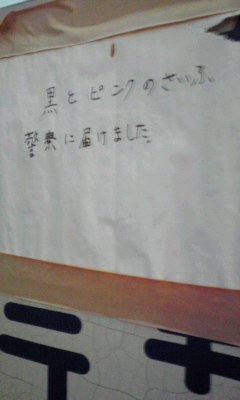 黒とピンクのさいふ
警察に届けました。